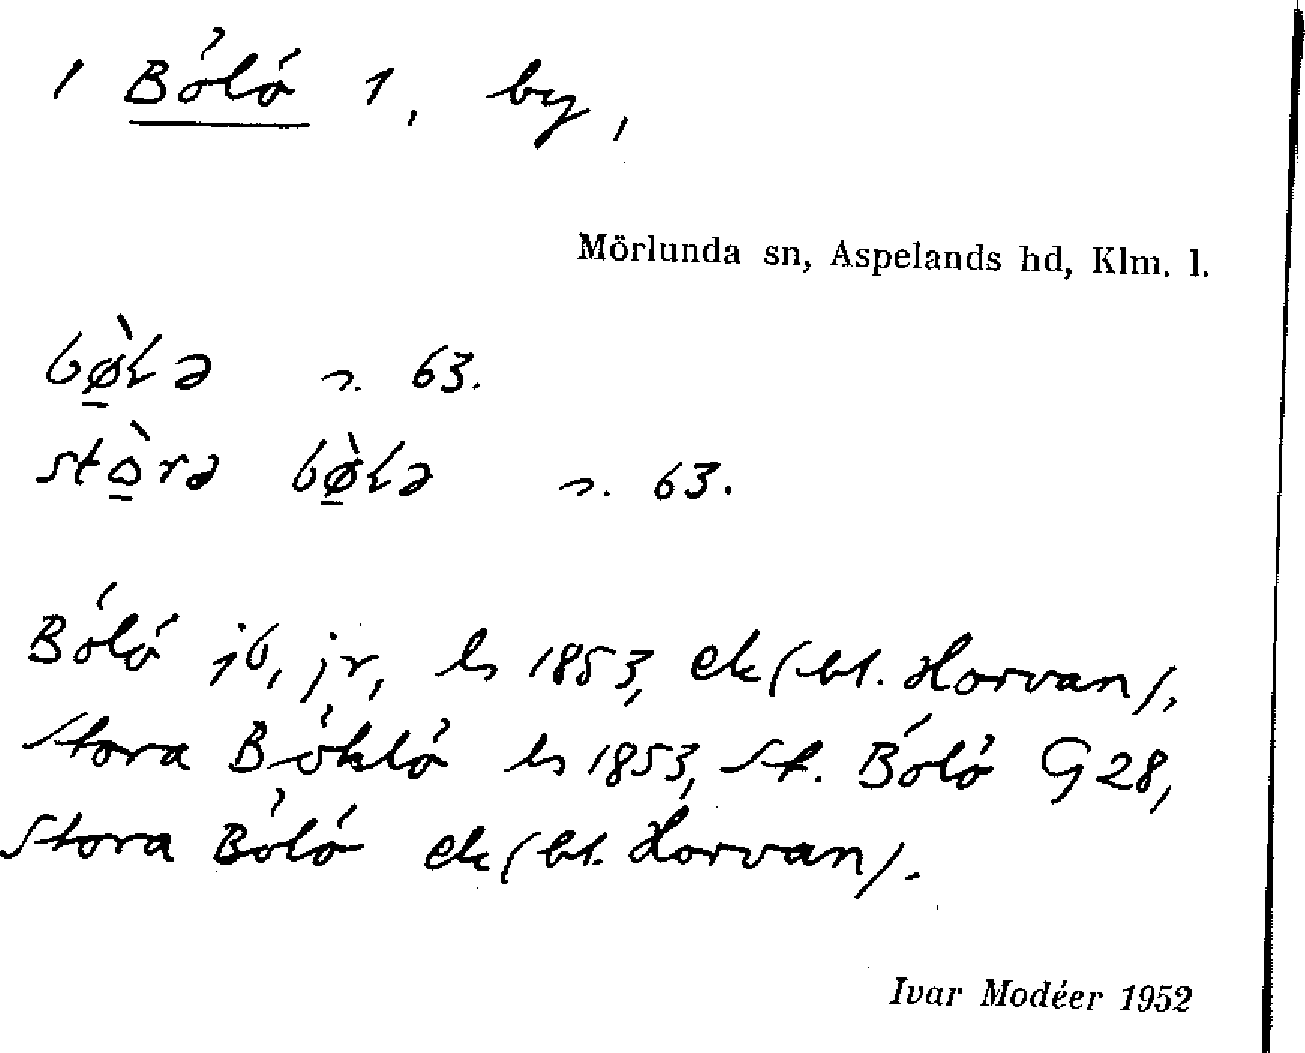 1 Bölö 1, by,
Mörlunda sn, Aspelands hd, Klm. l.
bø̀lə s. 63.
stò̱rə bø̀lə s. 63.
Bölö jb, jr, ls 1853, ek (bl. Horvan),
Stora Böklö ls 1853, St. Bölö G 28,
Stora Bölö ek (bl. Horvan).
Ivar Modéer 1952